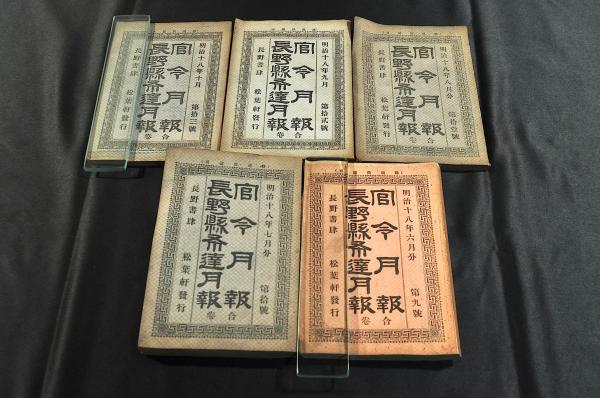 明治十八年十月
第拾三號
官令月報
長野縣布達月報
合卷
長野書肆 松葉軒發行
明治十八年九月
第拾貳號
官令月報
長野縣布達月報
合卷
長野書肆 松葉軒發行
明治十八年八月分
第拾壹號
官令月報
長野縣布達月報
合卷
長野書肆 松葉軒發行
明治十八年七月分
第拾號
官令月報
長野縣布達月報
合卷
長野書肆 松葉軒發行
明治十八年六月分
第九號
官令月報
長野縣布達月報
合卷
長野書肆 松葉軒發行